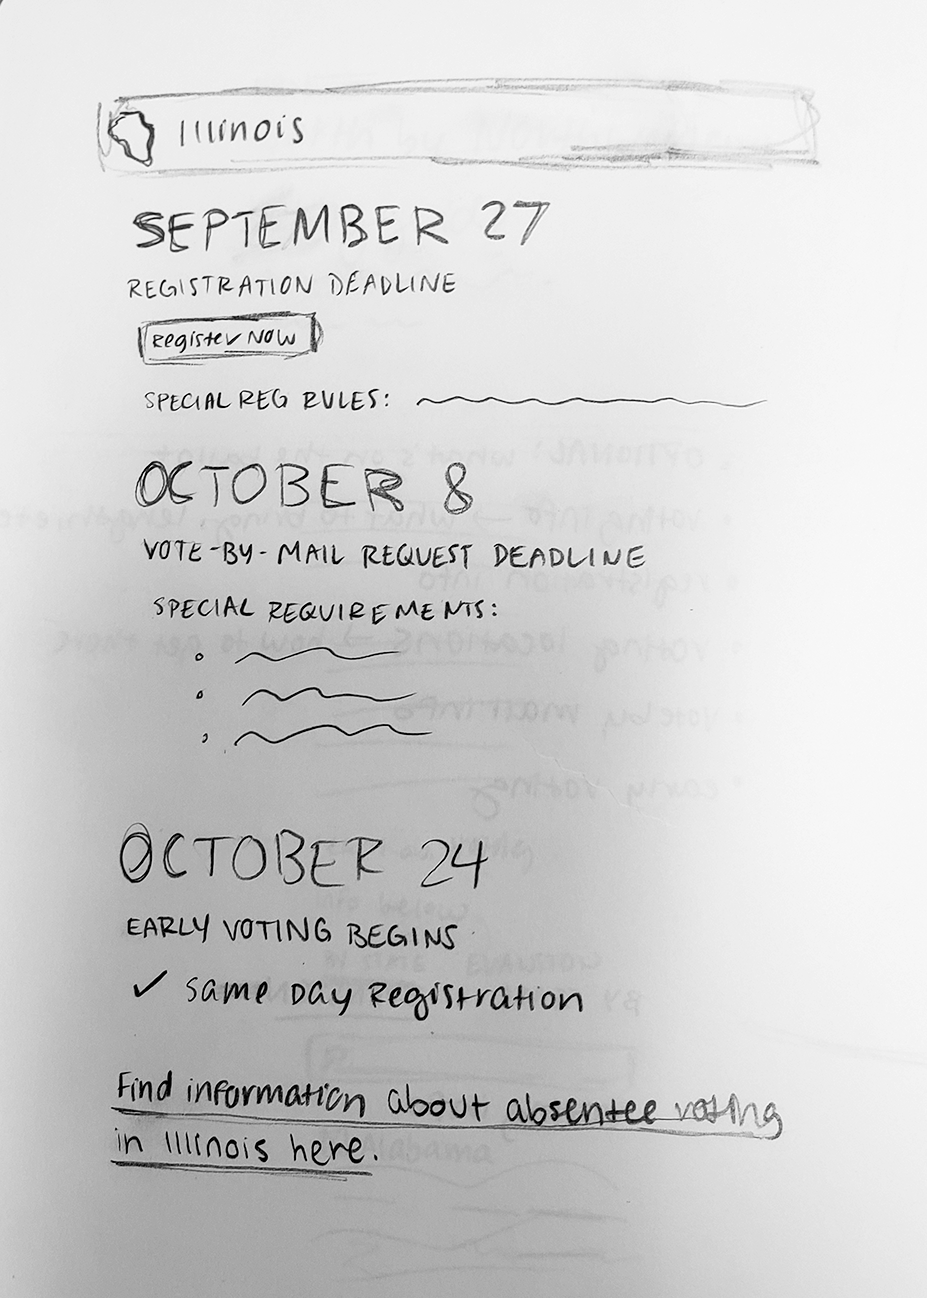 Illinois
SEPTEMBER 27
REGISTRATION DEADLINE
Register NOW
SPECIAL REG RULES:
OCTOBER 8
VOTE-BY-MAIL REQUEST DEADLINE
SPECIAL REQUIREMENTS:
OCTOBER 24
EARLY VOTING BEGINS
✓ Same Day Registration
Find information about absentee voting
in Illinois here.